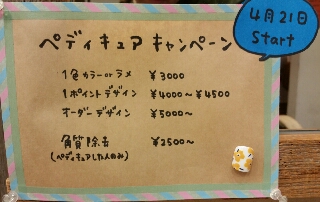 4月21日
Start
ペディキュアキャンペーン
1色カラーorラメ ¥3000
1ポイントデザイン ¥4000〜¥4500
オーダーデザイン ¥5000〜
角質除去 ¥2500〜
(ペディキュアした人のみ)